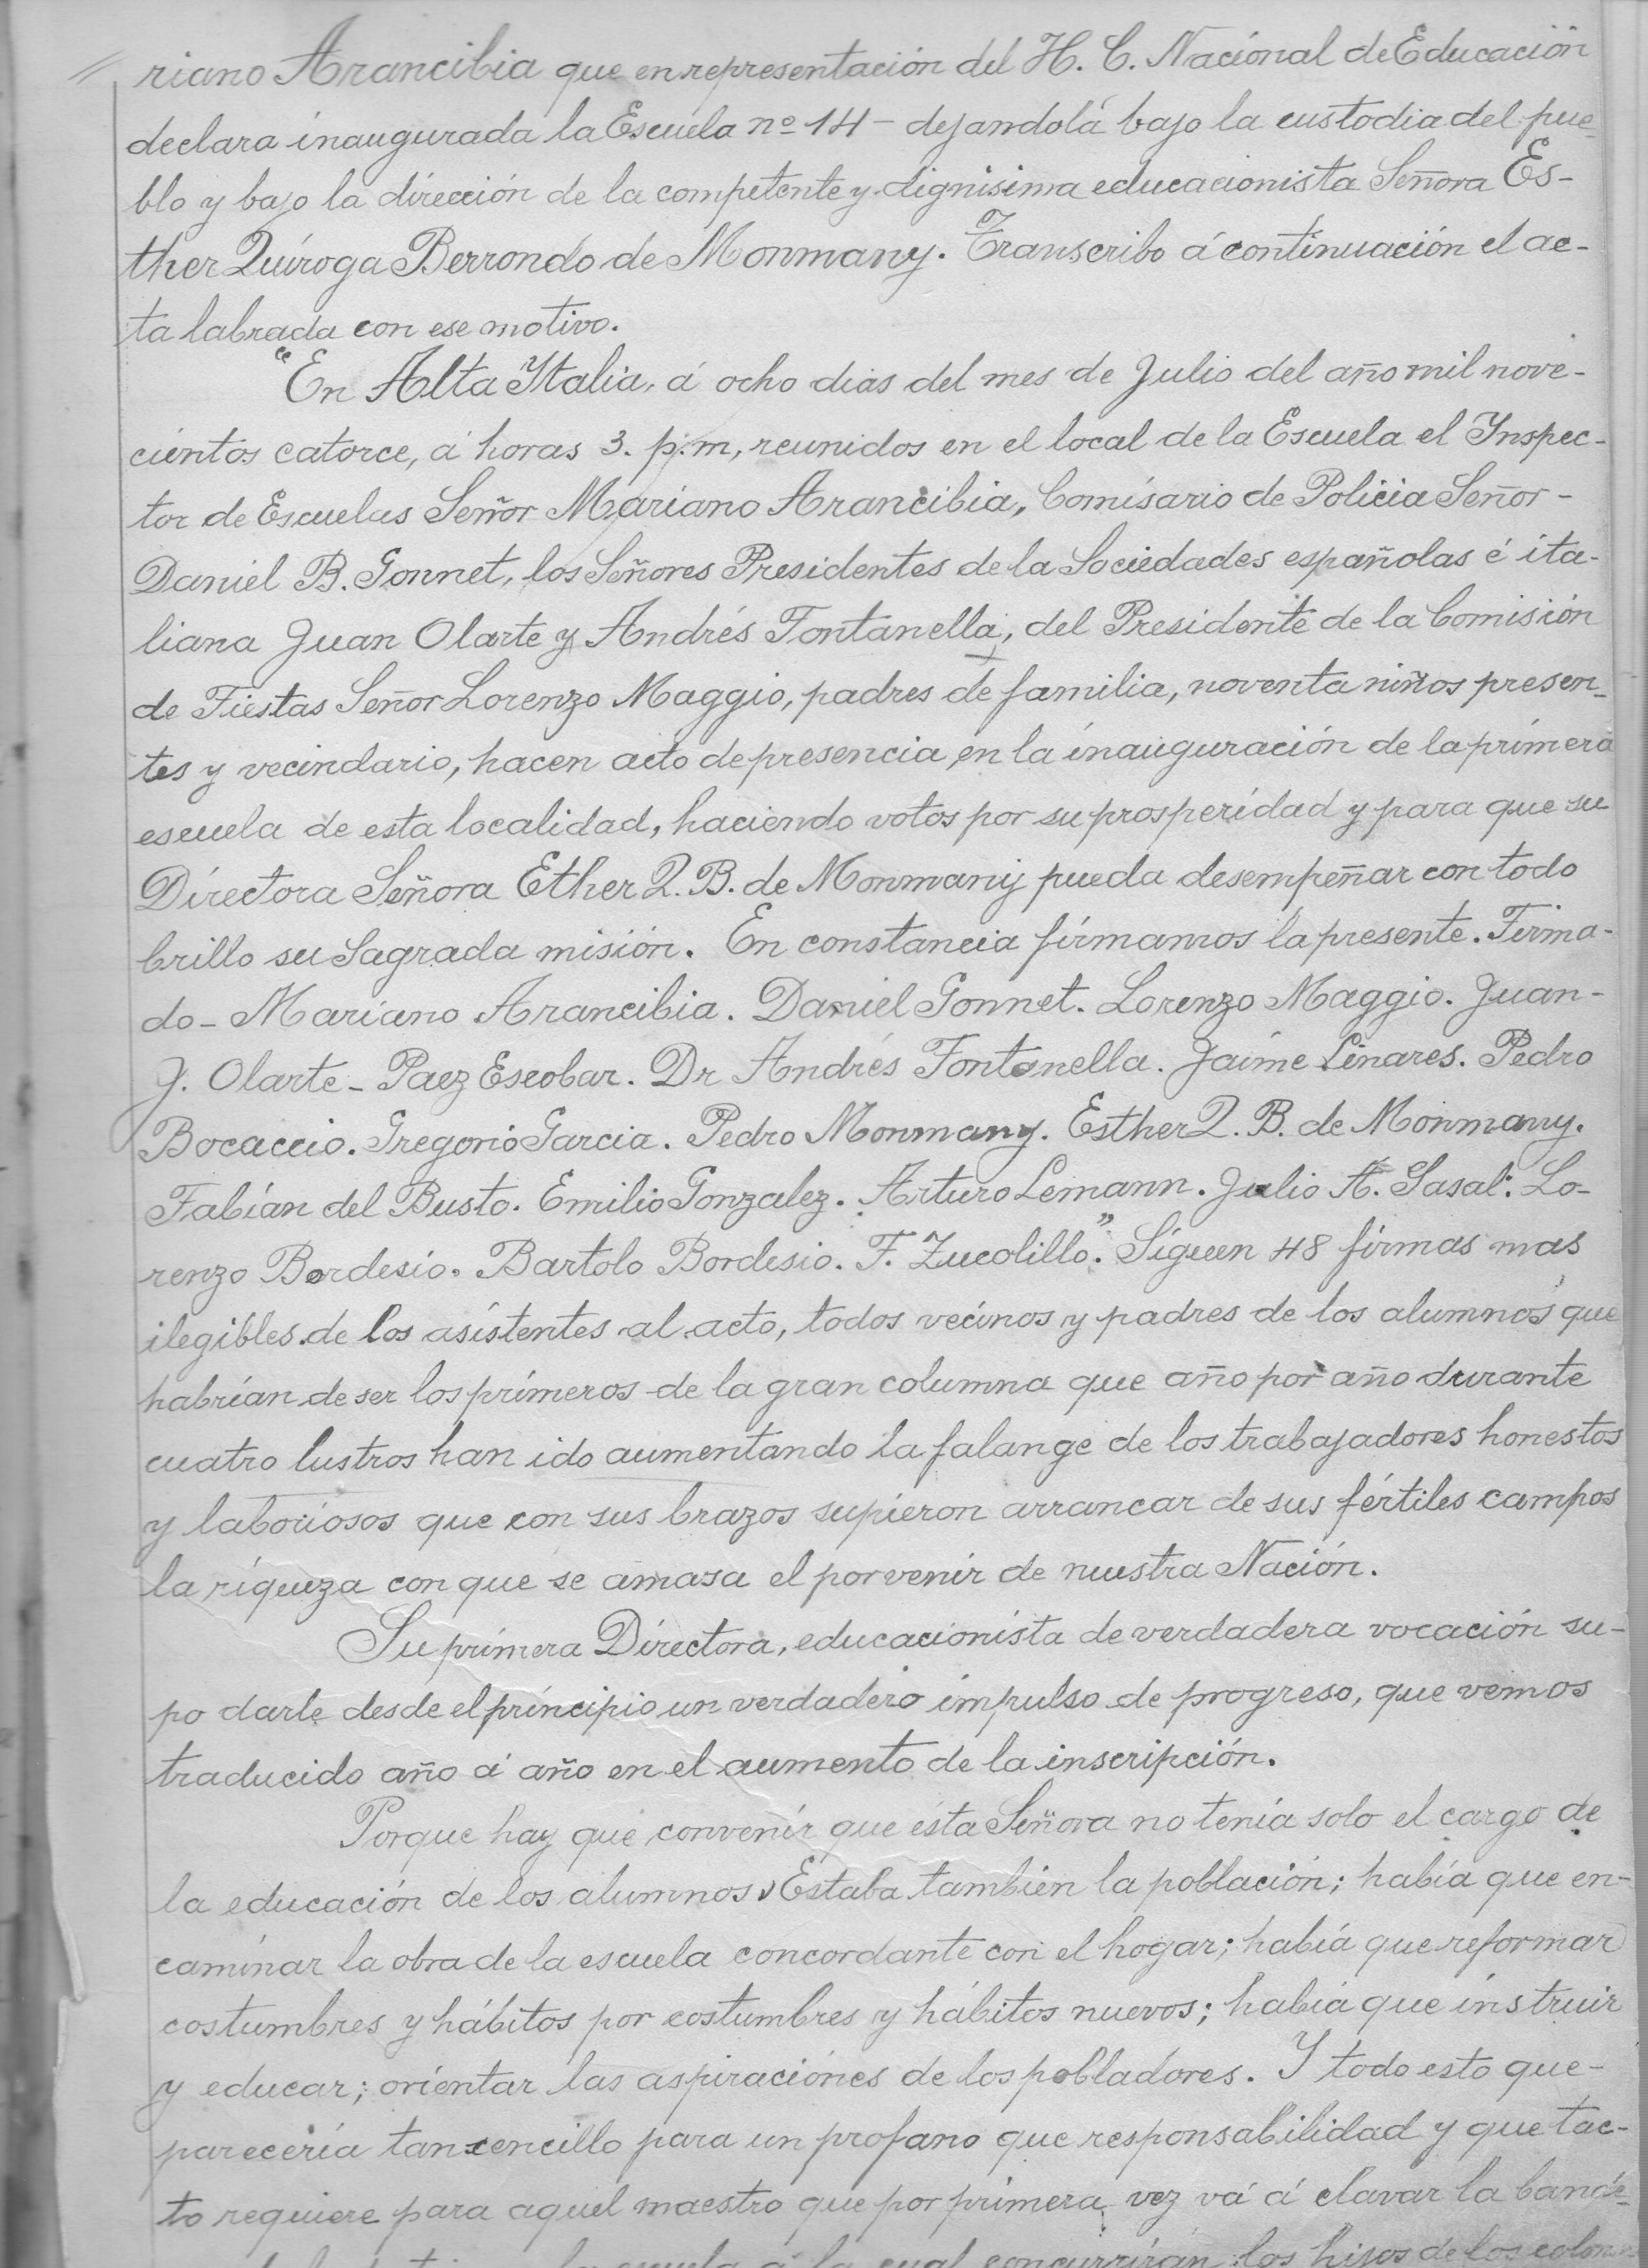 riano Arancibia que en representación del H. C. Nacional de Educación
declara inaugurada la Escuela nº 14 - dejandola bajo la custodia del pue-
blo y bajo la dirección de la competente y dignisima educacionista Señora Es-
ther Quiroga Berrondo de Monmany. Transcribo á continuación el ac-
ta labrada con ese motivo.
"En Alta Italia, á ocho dias del mes de Julio del año mil nove-
cientos catorce, á horas 3. p.m, reunidos en el local de la Escuela el Inspec-
tor de Escuelas Señor Mariano Arancibia, Comisario de Policia Señor -
Daniel B. Gonnet, los Señores Presidentes de la Sociedades españolas é ita-
liana Juan Olarte y Andrés Fontanella, del Presidente de la Comisión
de Fiestas Señor Lorenzo Maggio, padres de familia, noventa niños presen-
tes y vecindario, hacen acto de presencia en la inauguración de la primera
escuela de esta localidad, haciendo votos por su prosperidad y para que su
Directora Señora Ether Q. B. de Monmany pueda desempeñar con todo
brillo su Sagrada misión. En constancia firmamos la presente. Firma-
do - Mariano Arancibia. Daniel Gonnet. Lorenzo Maggio. Juan -
J. Olarte - Paez Escobar. Dr Andrés Fontanella. Jaime Linares. Pedro
Bocaccio. Gregorio Garcia. Pedro Monmany. Esther Q. B. de Monmany.
Fabián del Busto. Emilio Gonzalez. Arturo Lemann. Julio A. Sasal. Lo-
renzo Bordesio. Bartolo Bordesio. F. Zucolillo". Siguen 48 firmas mas
ilegibles de los asistentes al acto, todos vecinos y padres de los alumnos que
habrían de ser los primeros de la gran columna que año por año durante
cuatro lustros han ido aumentando la falange de los trabajadores honestos
y laboriosos que con sus brazos supieron arrancar de sus fértiles campos
la riqueza con que se amasa el porvenir de nuestra Nación.
Su primera Directora, educacionista de verdadera vocación su-
po darle desde el principio un verdadero impulso de progreso, que vemos
traducido año á año en el aumento de la inscripción.
Porque hay que convenir que esta Señora no tenía solo el cargo de
la educación de los alumnos. Estaba también la población; había que en-
caminar la obra de la escuela concordante con el hogar; había que reformar
costumbres y hábitos por costumbres y hábitos nuevos; había que instruir
y educar; orientar las aspiraciónes de los pobladores. Y todo esto que -
parecería tan sencillo para un profano que responsabilidad y que tac-
to requiere para aquel maestro que por primera vez vá á clavar la bande-
la escuela á la cual concurrirán los hijos de los colon